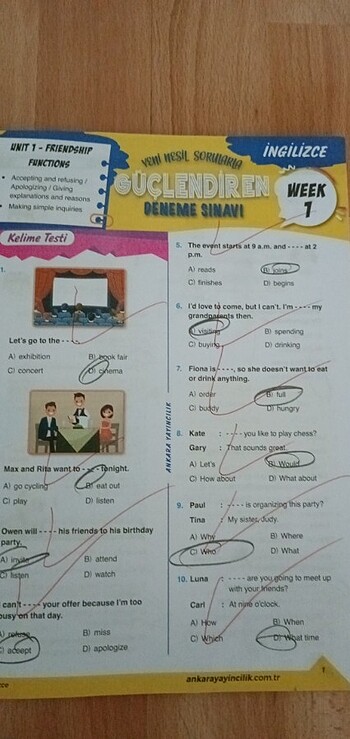 UNIT 1 - FRIENDSHIP
FUNCTIONS
• Accepting and refusing /
Apologizing / Giving
explanations and reasons
• Making simple inquiries
YENİ NESİL SORULARLA
GÜÇLENDİREN
DENEME SINAVI
İNGİLİZCE
WEEK
1
Kelime Testi
1.
Let's go to the ----.
A) exhibition B) book fair
C) concert D) cinema
Max and Rita want to ---- tonight.
A) go cycling B) eat out
C) play D) listen
Owen will ---- his friends to his birthday
party.
A) invite B) attend
C) listen D) watch
can't ---- your offer because I'm too
busy on that day.
A) refuse B) miss
C) accept D) apologize
ANKARA YAYINCILIK
5. The event starts at 9 a.m. and ---- at 2
p.m.
A) reads B) joins
C) finishes D) begins
6. I'd love to come, but I can't. I'm ---- my
grandparents then.
A) visiting B) spending
C) buying D) drinking
7. Fiona is ----, so she doesn't want to eat
or drink anything.
A) order B) full
C) buddy D) hungry
8. Kate : ---- you like to play chess?
Gary : That sounds great.
A) Let's B) Would
C) How about D) What about
9. Paul : ---- is organizing this party?
Tina : My sister, Judy.
A) Why B) Where
C) Who D) What
10. Luna : ---- are you going to meet up
with your friends?
Carl : At nine o'clock.
A) How B) When
C) Which D) What time
ankarayayincilik.com.tr
1